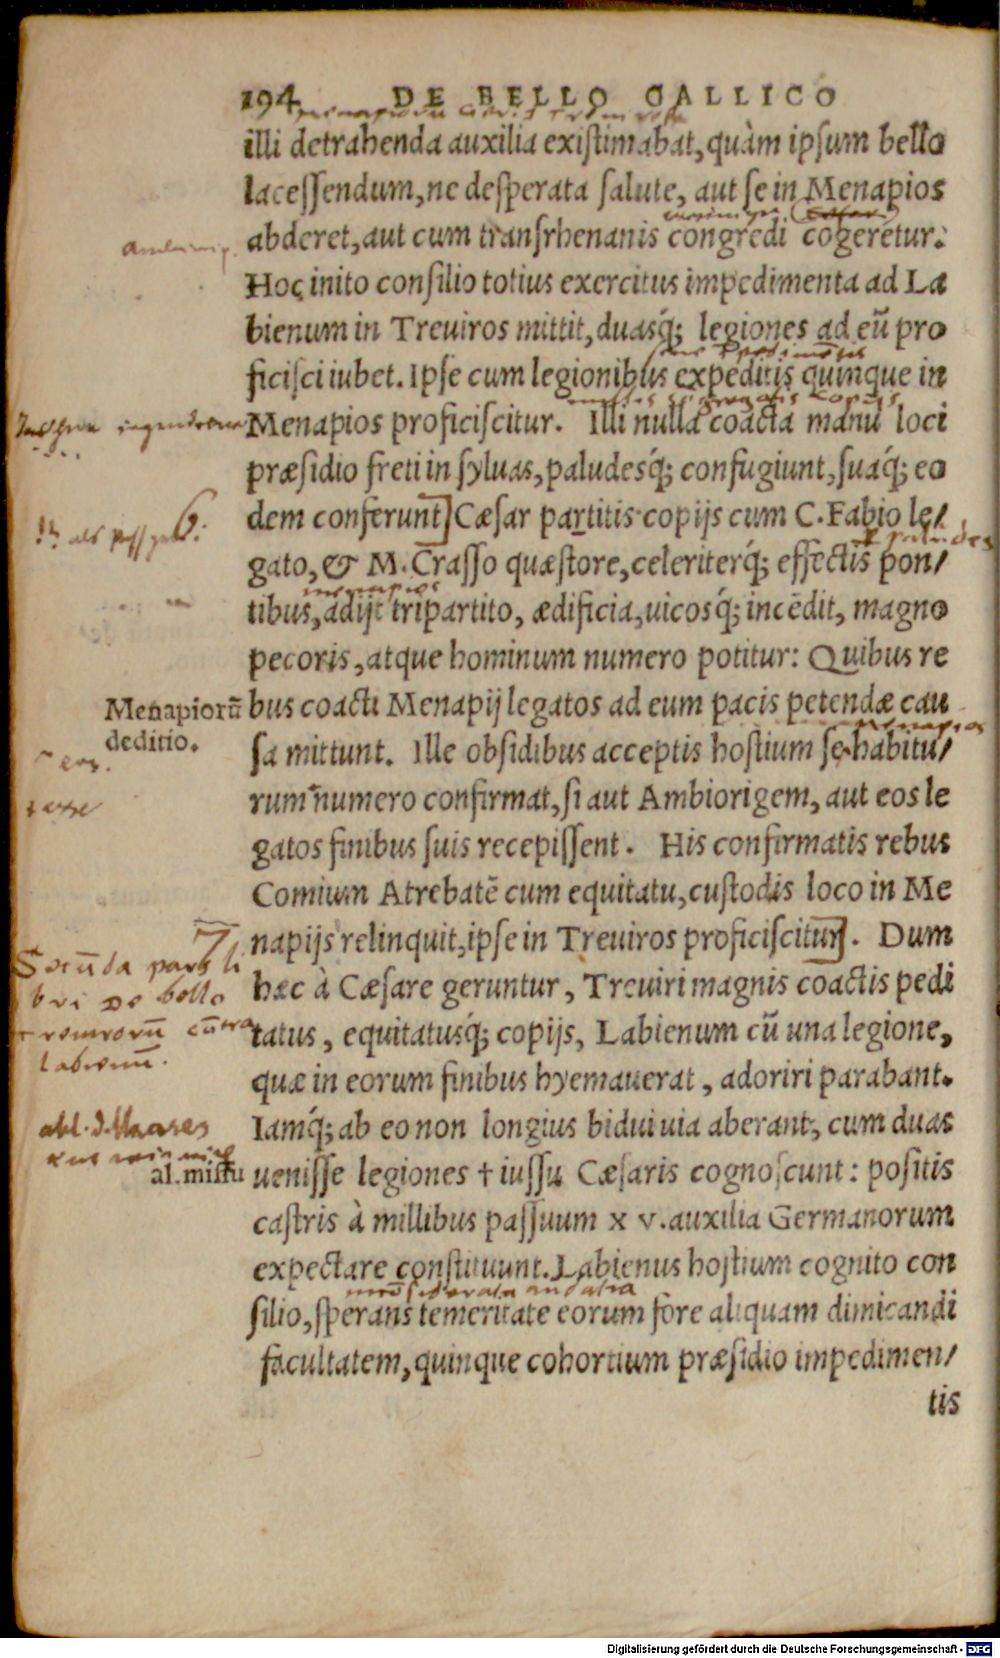 194 DE BELLO GALLICO
illi detrahenda auxilia existimabat, quàm ipsum bello
lacessendum, ne desperata salute, aut se in Menapios
abderet, aut cum transrhenanis congredi cogeretur.
Hoc inito consilio totius exercitus impedimenta ad La
bienum in Treuiros mittit, duasq́; legiones ad eū pro
ficisci iubet. Ipse cum legionibus expeditis quinque in
Menapios proficiscitur. Illi nulla coacta manu loci
præsidio freti in syluas, paludesq́; confugiunt, suaq́; eo
dem conferunt] Cæsar partitis copijs cum C. Fabio le/
6.
gato, & M. Crasso quæstore, celeriterq́; effectis pon/
menapios
tibus, adijt tripartito, ædificia, uicosq́; incēdit, magno
pecoris, atque hominum numero potitur: Quibus re
Menapiorū
deditio.
bus coacti Menapij legatos ad eum pacis petendæ cau
menapios
sa mittunt. Ille obsidibus acceptis hostium se habitu/
rum numero confirmat, si aut Ambiorigem, aut eos le
gatos finibus suis recepissent. His confirmatis rebus
Comium Atrebatē cum equitatu, custodis loco in Me
7
napijs relinquit, ipse in Treuiros proficiscitur]. Dum
Secūda pars li
bri de bello
treuirorū cōtra
labienū.
hæc à Cæsare geruntur, Treuiri magnis coactis pedi
tatus, equitatusq́; copijs, Labienum cū una legione,
quæ in eorum finibus hyemauerat, adoriri parabant.
Iamq́; ab eo non longius bidui uia aberant, cum duas
al. missu
uenisse legiones † iussu Cæsaris cognoscunt: positis
castris à millibus passuum x v. auxilia Germanorum
expectare constituunt. Labienus hostium cognito con
audatia
silio, sperans temeritate eorum fore aliquam dimicandi
facultatem, quinque cohortium præsidio impedimen/
tis
Digitalisierung gefördert durch die Deutsche Forschungsgemeinschaft - DFG